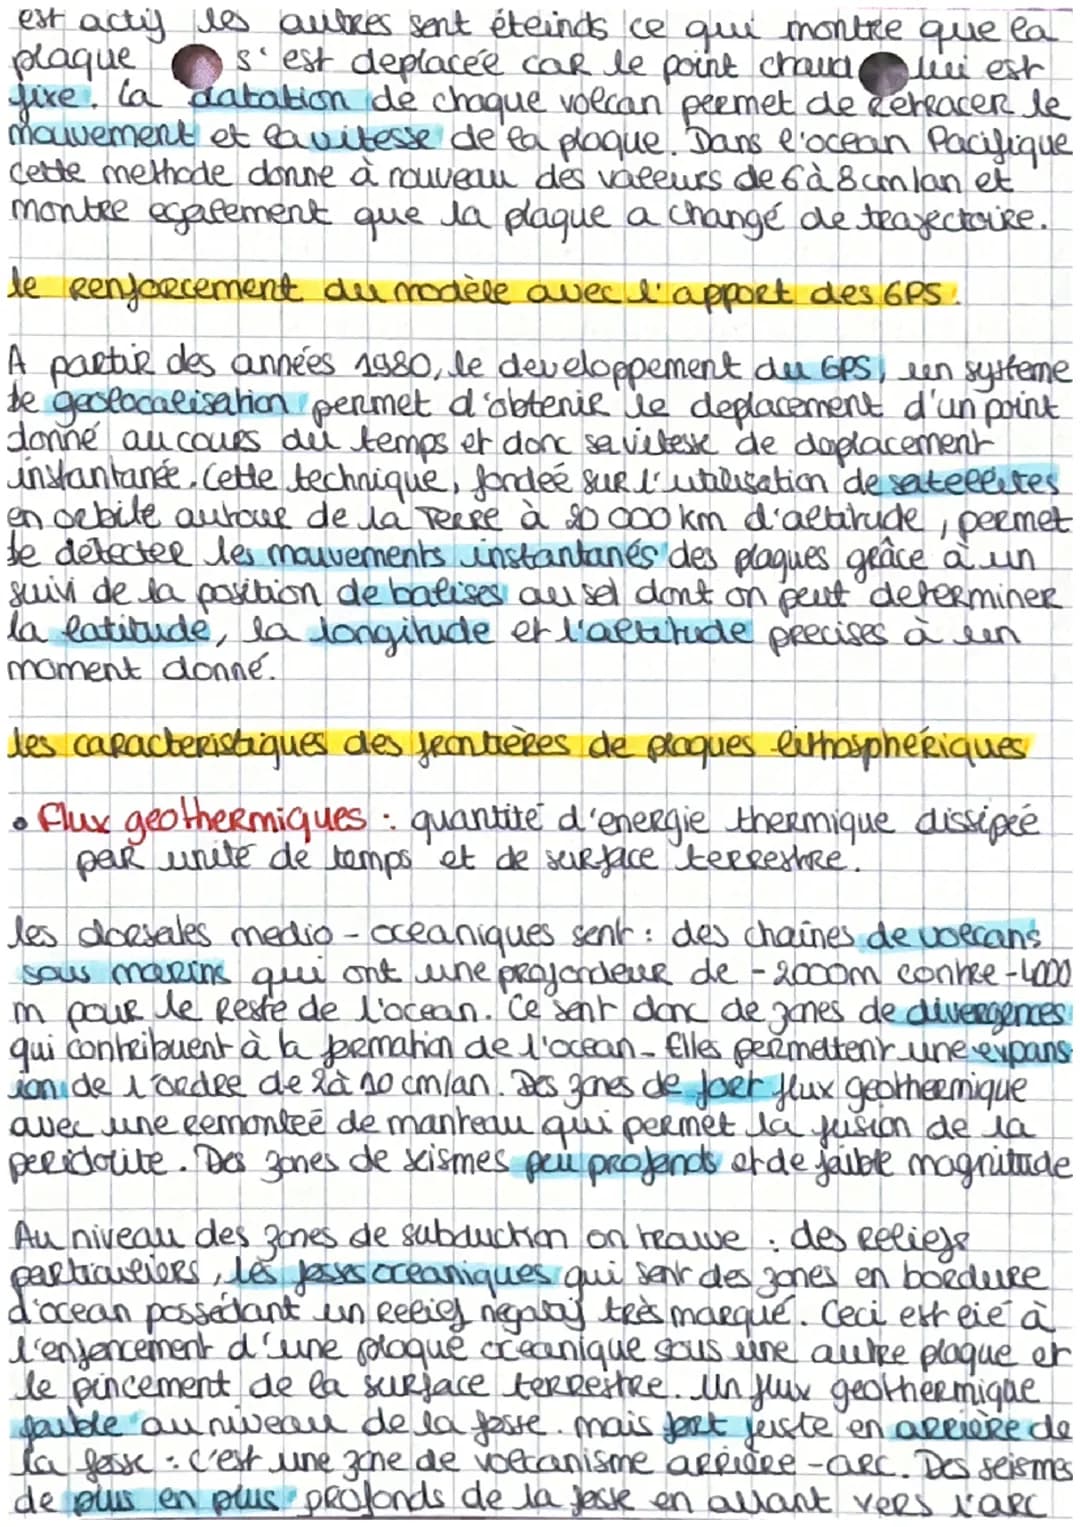 est actif les autres sont éteinds ce qui montre que la
plaque s'est deplacée car le point chaud lui est
fixe. La datation de chaque volcan permet de retracer le
mouvement et la vitesse de la plaque. Dans l'ocean Pacifique
cette methode donne à nouveau des valeurs de 6 à 8 cm/an et
montre egalement que la plaque a changé de trajectoire.
le renforcement du modèle avec l'apport des GPS.
A partir des années 1980, le developpement du GPS, un systeme
de geolocalisation permet d'obtenir le deplacement d'un point
donné au cours du temps et donc sa vitesse de deplacement
instantanée. Cette technique, fondée sur l'utilisation de satellites
en orbite autour de la Terre à 20 000 km d'altitude, permet
de détecter les mouvements instantanés des plaques grâce à un
suivi de la position de balises au sol dont on peut determiner
la latitude, la longitude et l'altitude precises à un
moment donné.
les caracteristiques des frontières de plaques lithosphériques
• Flux geothermiques : quantité d'énergie thermique dissipée
par unité de temps et de surface terrestre.
les dorsales medio-oceaniques sont : des chaînes de volcans
sous marins qui ont une profondeur de -2000m contre -4000
m pour le reste de l'ocean. Ce sont donc de zones de divergences
qui contribuent à la formation de l'ocean. Elles permettent une expans-
ion de l'ordre de 2 à 10 cm/an. Des zones de fort flux geothermique
avec une remontée de manteau qui permet la fusion de la
peridotite. Des zones de seismes peu profonds et de faible magnitude
Au niveau des zones de subduction on trouve : des reliefs
particuliers, les fosses oceaniques qui sont des zones en bordure
d'ocean possédant un relief négatif très marqué. Ceci est lié à
l'enfoncement d'une plaque océanique sous une autre plaque et
le pincement de la surface terrestre. Un flux geothermique
faible au niveau de la fosse. mais fort juste en arrière de
la fosse : c'est une zone de volcanisme arrière-arc. Des seismes
de plus en plus profonds de la fosse en allant vers l'arc